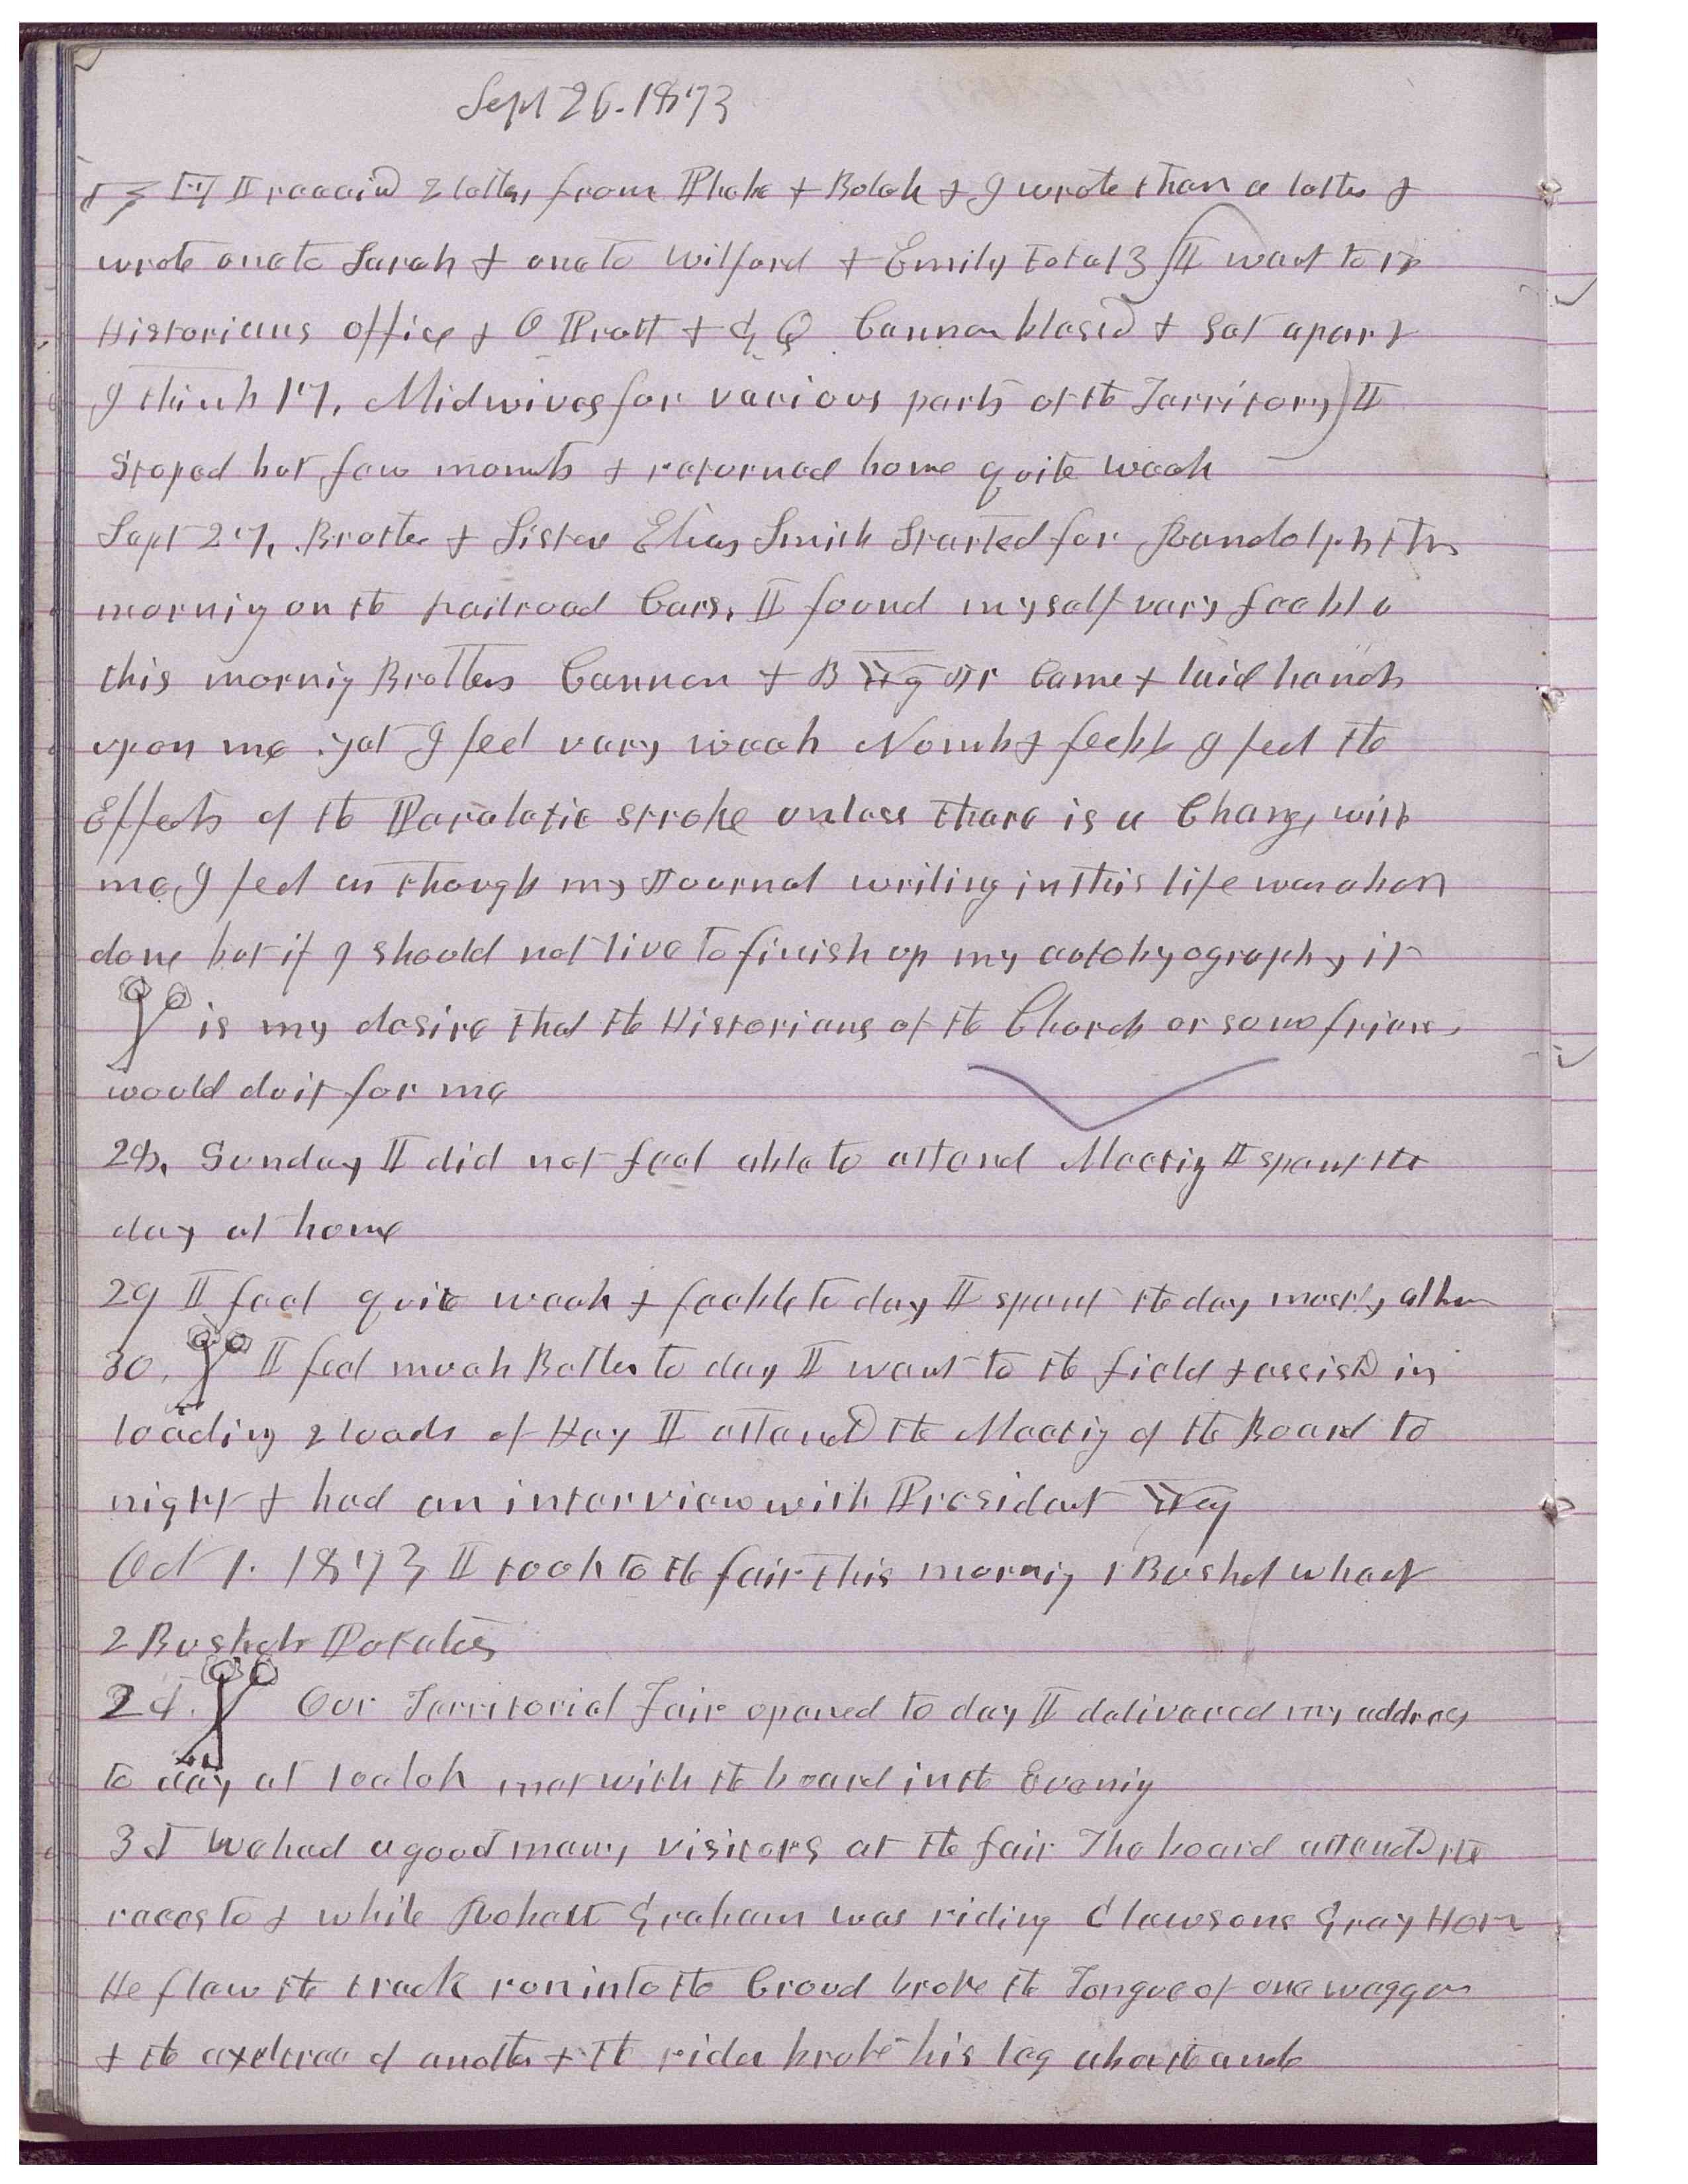 Sept 26. 1873
I received 2 letters from Phebe & Bulah & I wrote them a letter &
wrote one to Sarah & one to Wilford & Emily total 3 I went to the
Historians office & O Pratt & G Q Cannon blessed & set apart
I think 17, Midwives for various parts of the Territory I
stoped but few moments & returned home quite weak
Sept 27, Brother & Sister Elias Smith Started for Randolph this
morning on the railroad Cars, I found myself very feeble
this morning Brothers Cannon & B Yg Jr Came & laid hands
upon me yet I feel very weak Numb & feeble I feel the
Effects of the Paraletic stroke unless there is a Change with
me, I feel as though my Journal writing in this life was about
done but if I should not live to finish up my autobyography it
is my desire that the Historians of the Church or some friend
would do it for me
28, Sunday I did not feel able to attend Meeting I spent the
day at home
29 I feel quite weak & feeble to day I spent the day mostly at home
30, I feel much Better to day I went to the field & assisted in
loading 2 loads of Hay I attended the Meeting of the Board to
night & had an interview with President Yg
Oct 1. 1873 I took to the fair this morning 1 Bushel wheat
2 Bushels Potatoes
2d. Our Territorial Fair opened to day I delivered my address
to day at 10 oclok met with the board in the Evening
3d We had a good many visitors at the fair The board attended the
races to & while Robert Graham was riding Clawsons Gray Horse
He flew the track run into the Croud broke the Tongue of one waggon
& the axeltree of another & the rider broke his leg about the ancle